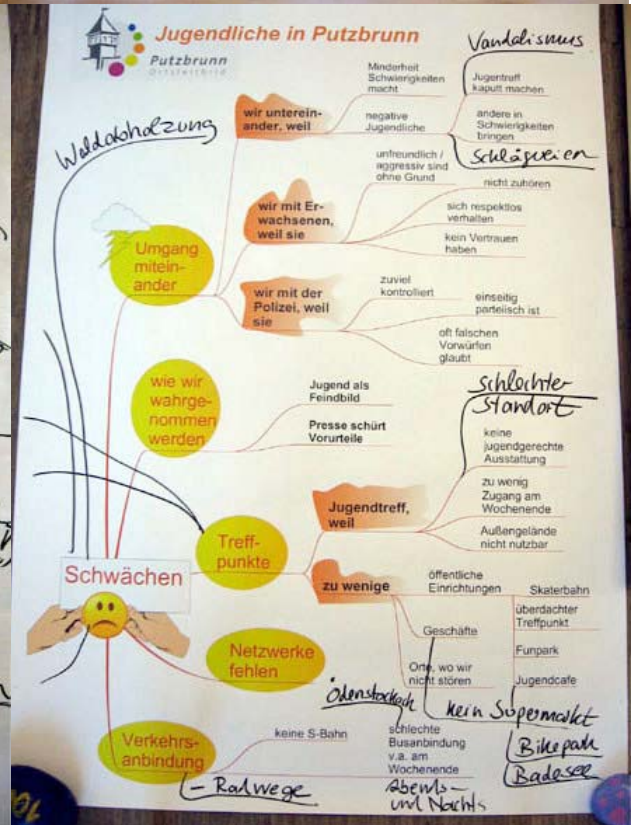 Jugendliche in Putzbrunn
Putzbrunn
Ortsleitbild
Vandalismus
Waldabholzung
wir unterein-
ander, weil
Minderheit
Schwierigkeiten
macht
negative
Jugendliche
Jugentreff
kaputt machen
andere in
Schwierigkeiten
bringen
Schlägereien
Umgang
mitein-
ander
wir mit Er-
wachsenen,
weil sie
unfreundlich /
aggressiv sind
ohne Grund
nicht zuhören
sich respektlos
verhalten
kein Vertrauen
haben
wir mit der
Polizei, weil
sie
zuviel
kontrolliert
einseitig
parteiisch ist
oft falschen
Vorwürfen
glaubt
wie wir
wahrge-
nommen
werden
Jugend als
Feindbild
Presse schürt
Vorurteile
schlechter
Standort
Treff-
punkte
Jugendtreff,
weil
keine
jugendgerechte
Ausstattung
zu wenig
Zugang am
Wochenende
Außengelände
nicht nutzbar
Schwächen
zu wenige
öffentliche
Einrichtungen
Skaterbahn
überdachter
Treffpunkt
Funpark
Jugendcafe
Geschäfte
Orte, wo wir
nicht stören
kein Supermarkt
Bikepark
Badesee
Netzwerke
fehlen
Verkehrs-
anbindung
keine S-Bahn
Ödenstockach
schlechte
Busanbindung
v.a. am
Wochenende
Abends-
und Nachts
- Radwege